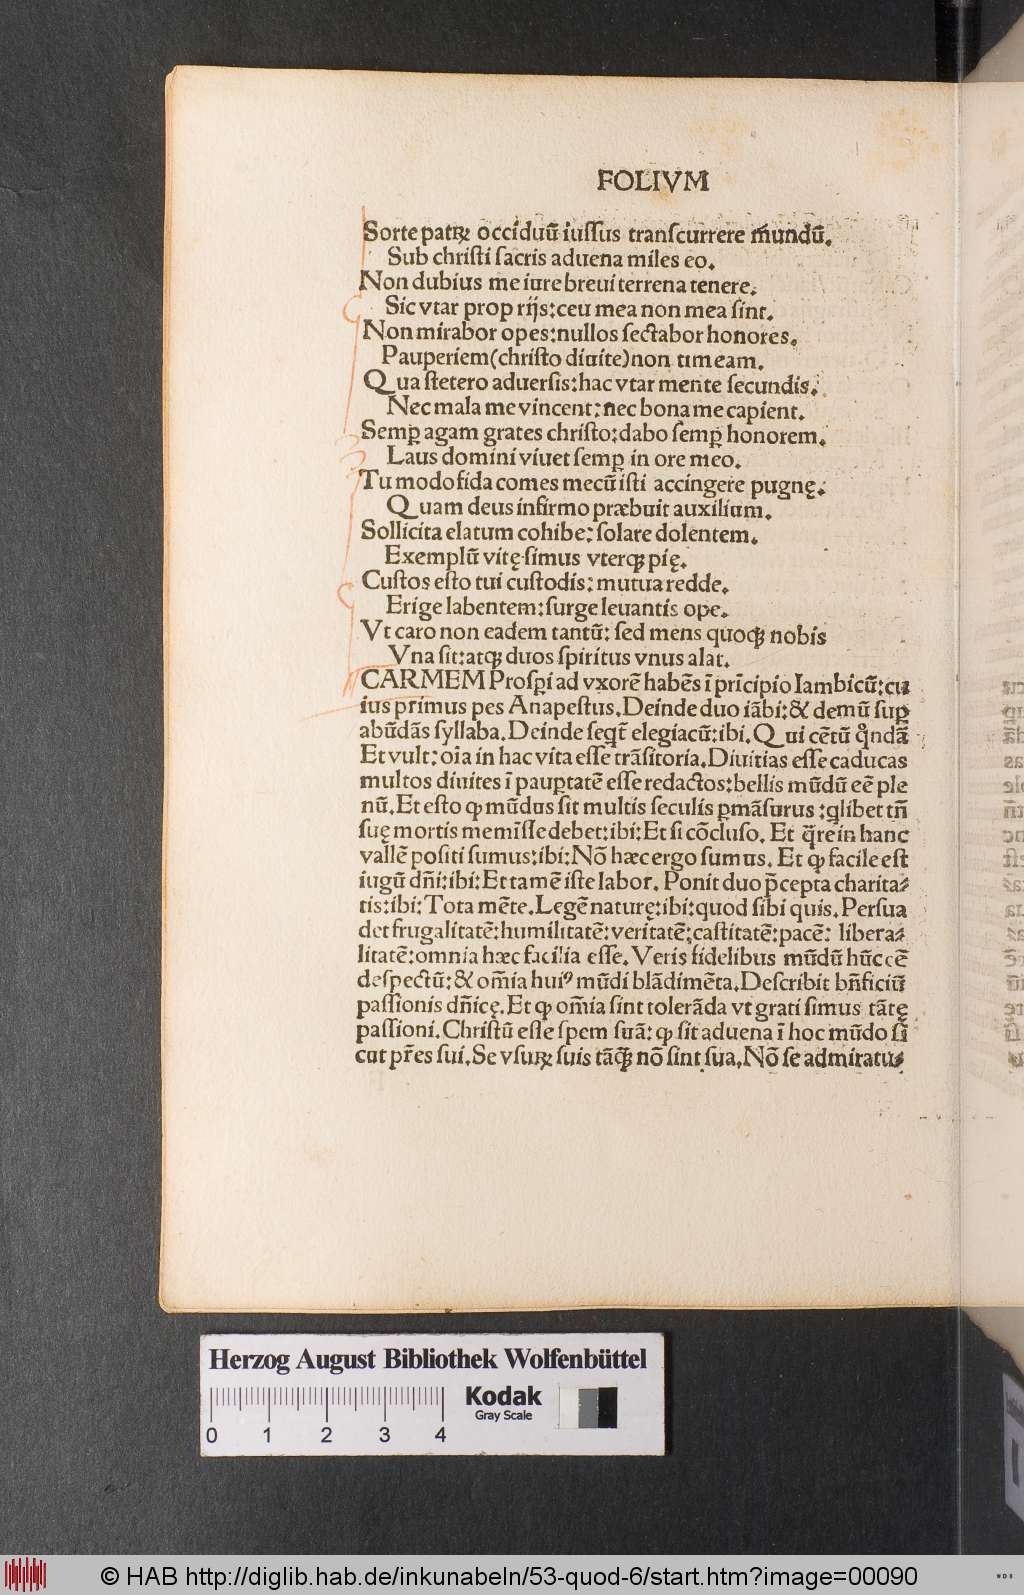 FOLIVM
Sorte patꝝ occiduū iuſſus tranſcurrere mūndū.
Sub chriſti ſacris aduena miles eo.
Non dubius me iure breui terrena tenere:
Sic vtar proprijs: ceu mea non mea ſint.
Non mirabor opes: nullos ſectabor honores.
Pauperiem (chriſto diuite) non timeam.
Qua ſtetero aduerſis: hac vtar mente ſecundis.
Nec mala me vincent: nec bona me capient.
Semꝑ agam grates chriſto: dabo ſemꝑ honorem.
Laus domini viuet ſemꝑ in ore meo.
Tu modo fida comes mecū iſti accingere pugnę:
Quam deus infirmo præbuit auxilium.
Sollicita elatum cohibe: ſolare dolentem.
Exemplū vitę ſimus vterqꝫ pię.
Cuſtos eſto tui cuſtodis: mutua redde.
Erige labentem: ſurge leuantis ope.
Vt caro non eadem tantū: ſed mens quoqꝫ nobis
Vna ſit: atqꝫ duos ſpiritus vnus alat.
CARMEM Proſꝑi ad vxorē habēs ī prīcipio Iambicū: cu
ius primus pes Anapeſtus. Deinde duo iābi: & demū ſuꝑ
abūdās ſyllaba. Deinde ſeqt̄ elegiacū: ibi. Qui cētū qͦndā
Et vult: oīa in hac vita eſſe trāſitoria. Diuitias eſſe caducas
multos diuites ī pauꝑtatē eſſe redactos: bellis mūdū eē ple
nū. Et eſto ꝙ mūdus ſit multis ſeculis ꝑmāſurus: qlibet tn̄
ſuę mortis memīſſe debet: ibi: Et ſi cōcluſo. Et q̄re in hanc
vallē poſiti ſumus: ibi: Nō hæc ergo ſumus. Et ꝙ facile eſt
iugū dn̄i: ibi: Et tamē iſte labor. Ponit duo p̄cepta charita⸗
tis: ibi: Tota mēte. Legē naturę: ibi: quod ſibi quis. Perſua
det frugalitatē: humilitatē: veritatē: caſtitatē: pacē: libera⸗
litatē: omnia hæc facilia eſſe. Veris fidelibus mūdū hūc eē
deſpectū: & om̄ia huiꝰ mūdi blādimēta. Deſcribit bn̄ficiū
paſſionis dn̄icę. Et ꝙ om̄ia ſint tolerāda vt grati ſimus tātę
paſſioni. Chriſtū eſſe ſpem ſuā: ꝙ ſit aduena ī hoc mūdo ſī
cut pr̄es ſui. Se vſurꝝ ſuis tāqꝫ̄ nō ſint ſua. Nō ſe admiratu⸗
Herzog August Bibliothek Wolfenbüttel
Kodak
Gray Scale
0 1 2 3 4
© HAB http://diglib.hab.de/inkunabeln/53-quod-6/start.htm?image=00090